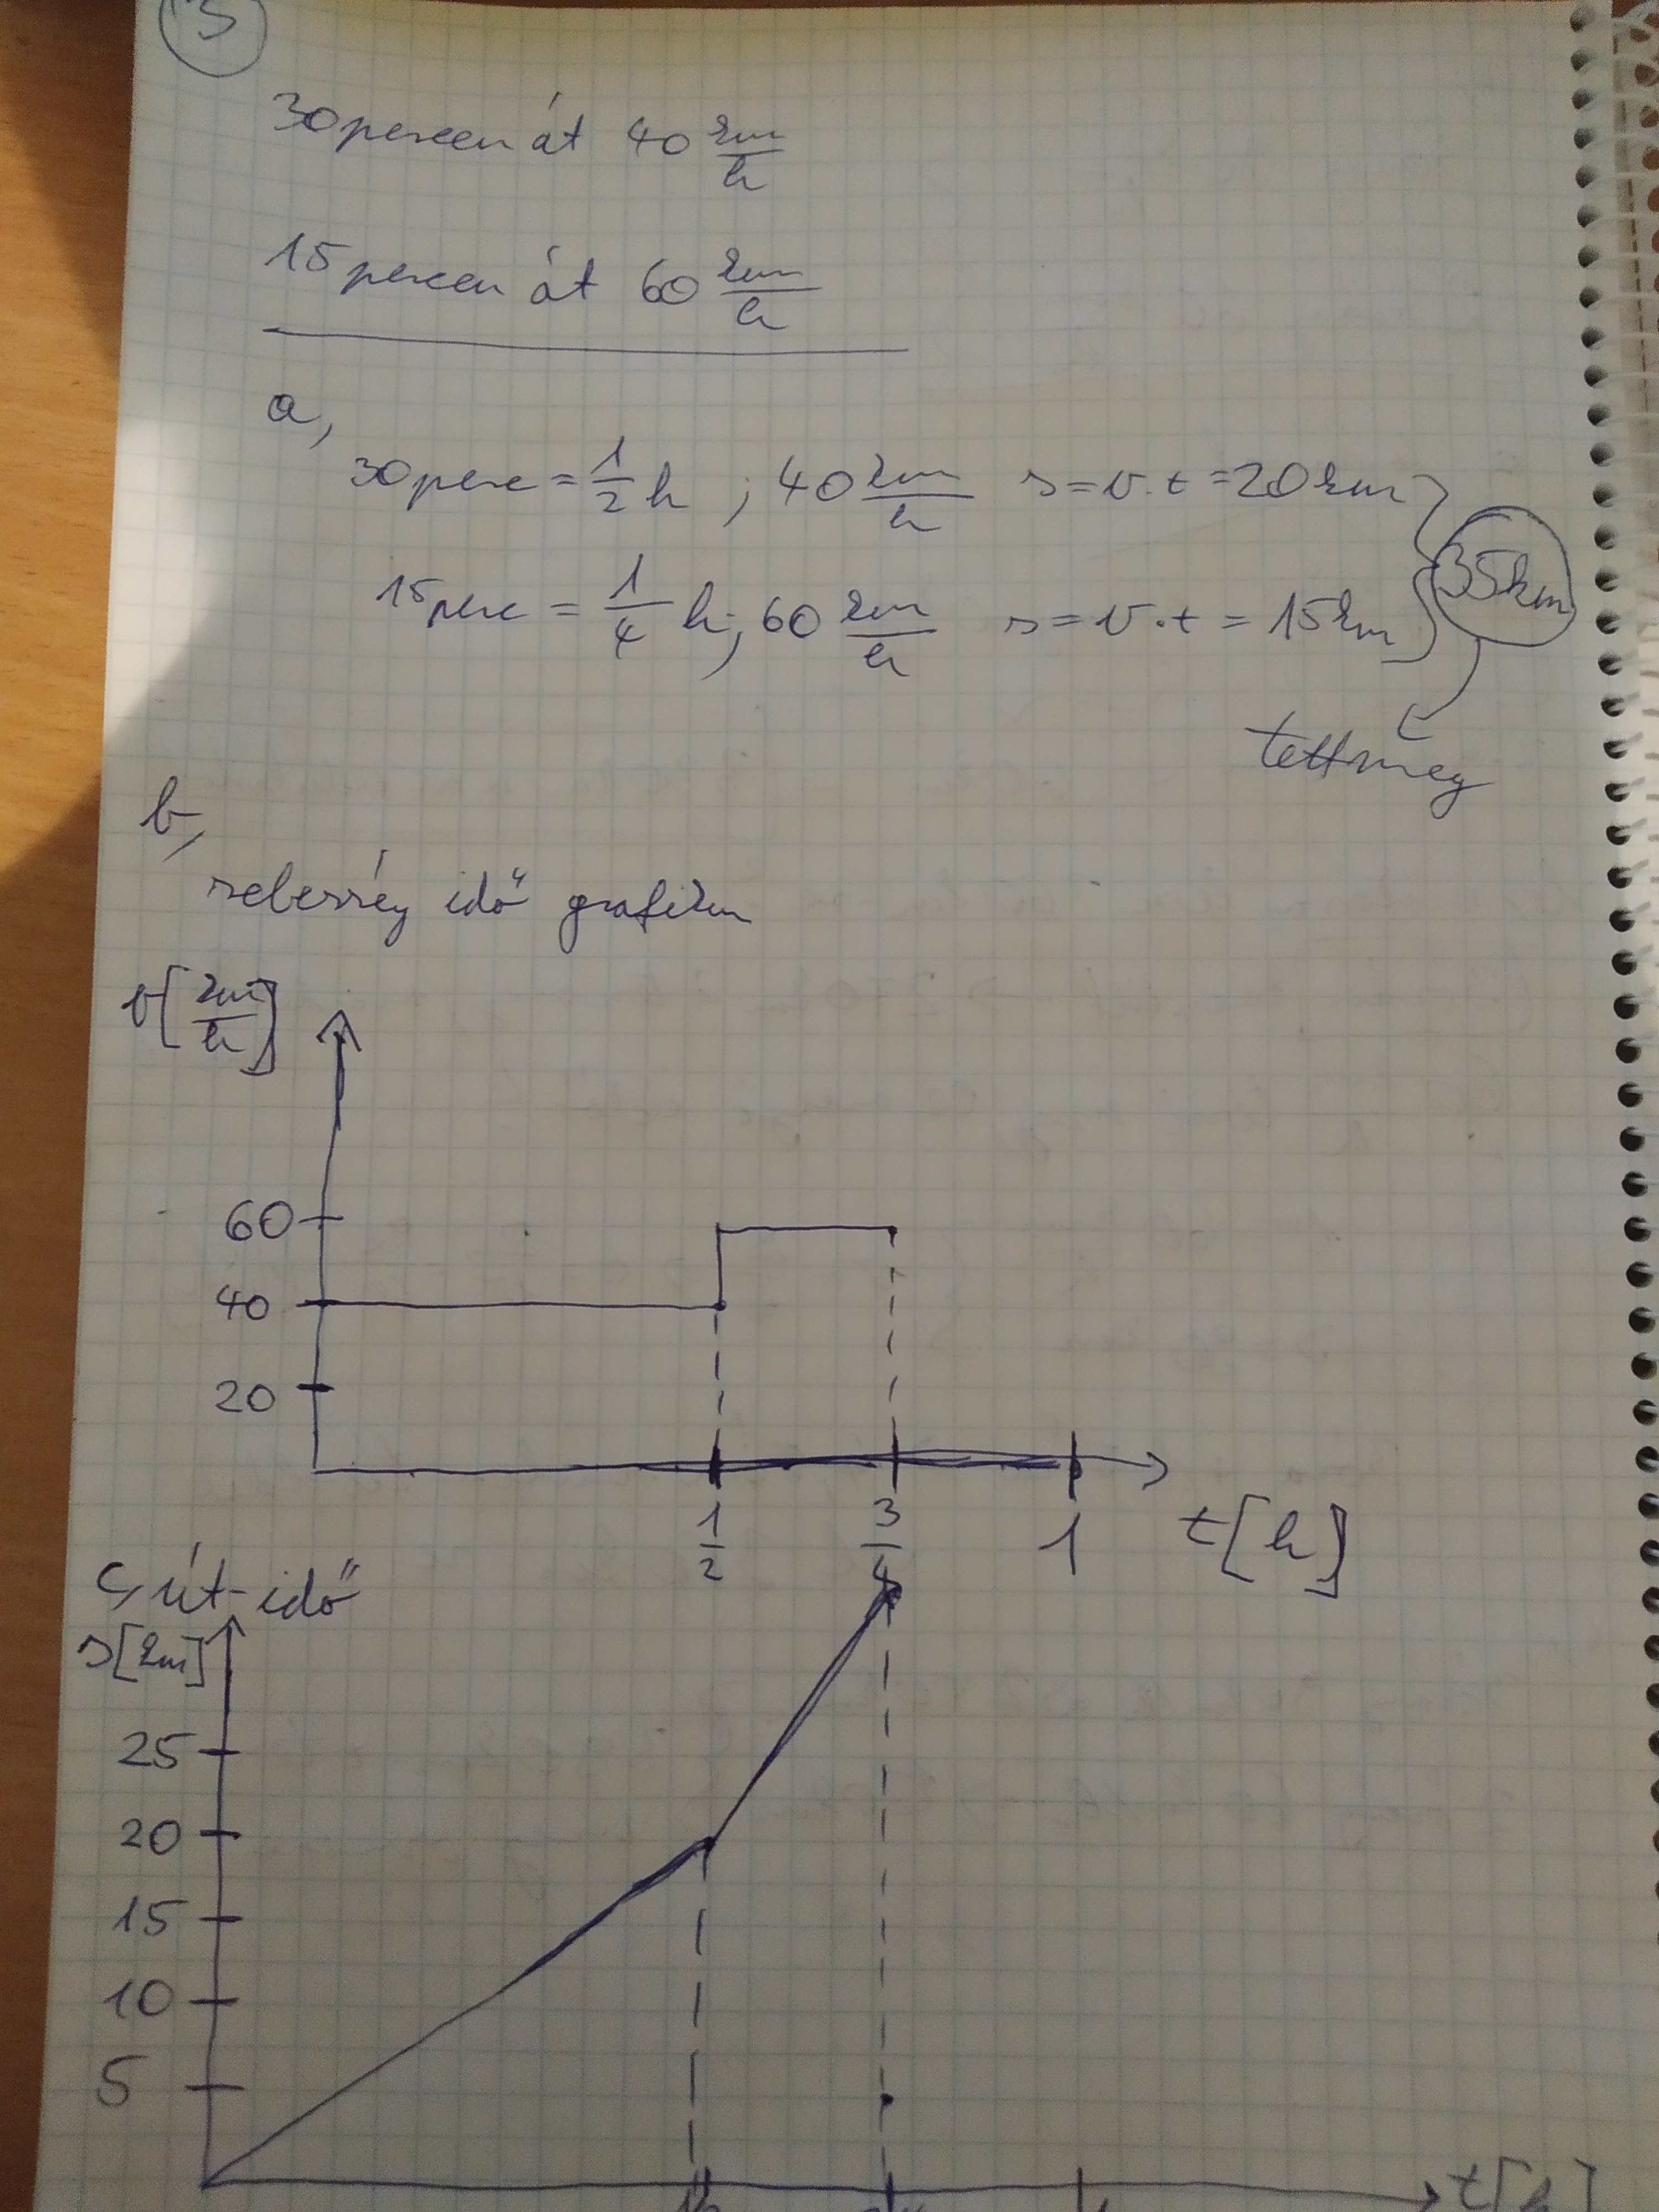 3
30 percen át 40 km/h
15 percen át 60 km/h
a,
30 perc = 1/2 h ; 40 km/h s = v.t = 20 km
35km
15 perc = 1/4 h; 60 km/h s = v.t = 15 km
tett meg
b,
sebesség idő grafikon
v[km/h]
60
40
20
1/2 3/4 1 t[h]
c, út-idő
s[km]
25
20
15
10
5
t[h]